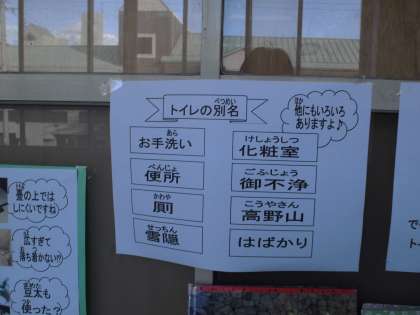 トイレの別名
べつめい
他にもいろいろ
ほか
ありますよ♪
お手洗い
あら
化粧室
けしょうしつ
便所
べんじょ
御不浄
ごふじょう
厠
かわや
高野山
こうやさん
雪隠
せっちん
はばかり
畳の上では
しにくいですね
広すぎて
落ち着かない!?
も
使った?
で